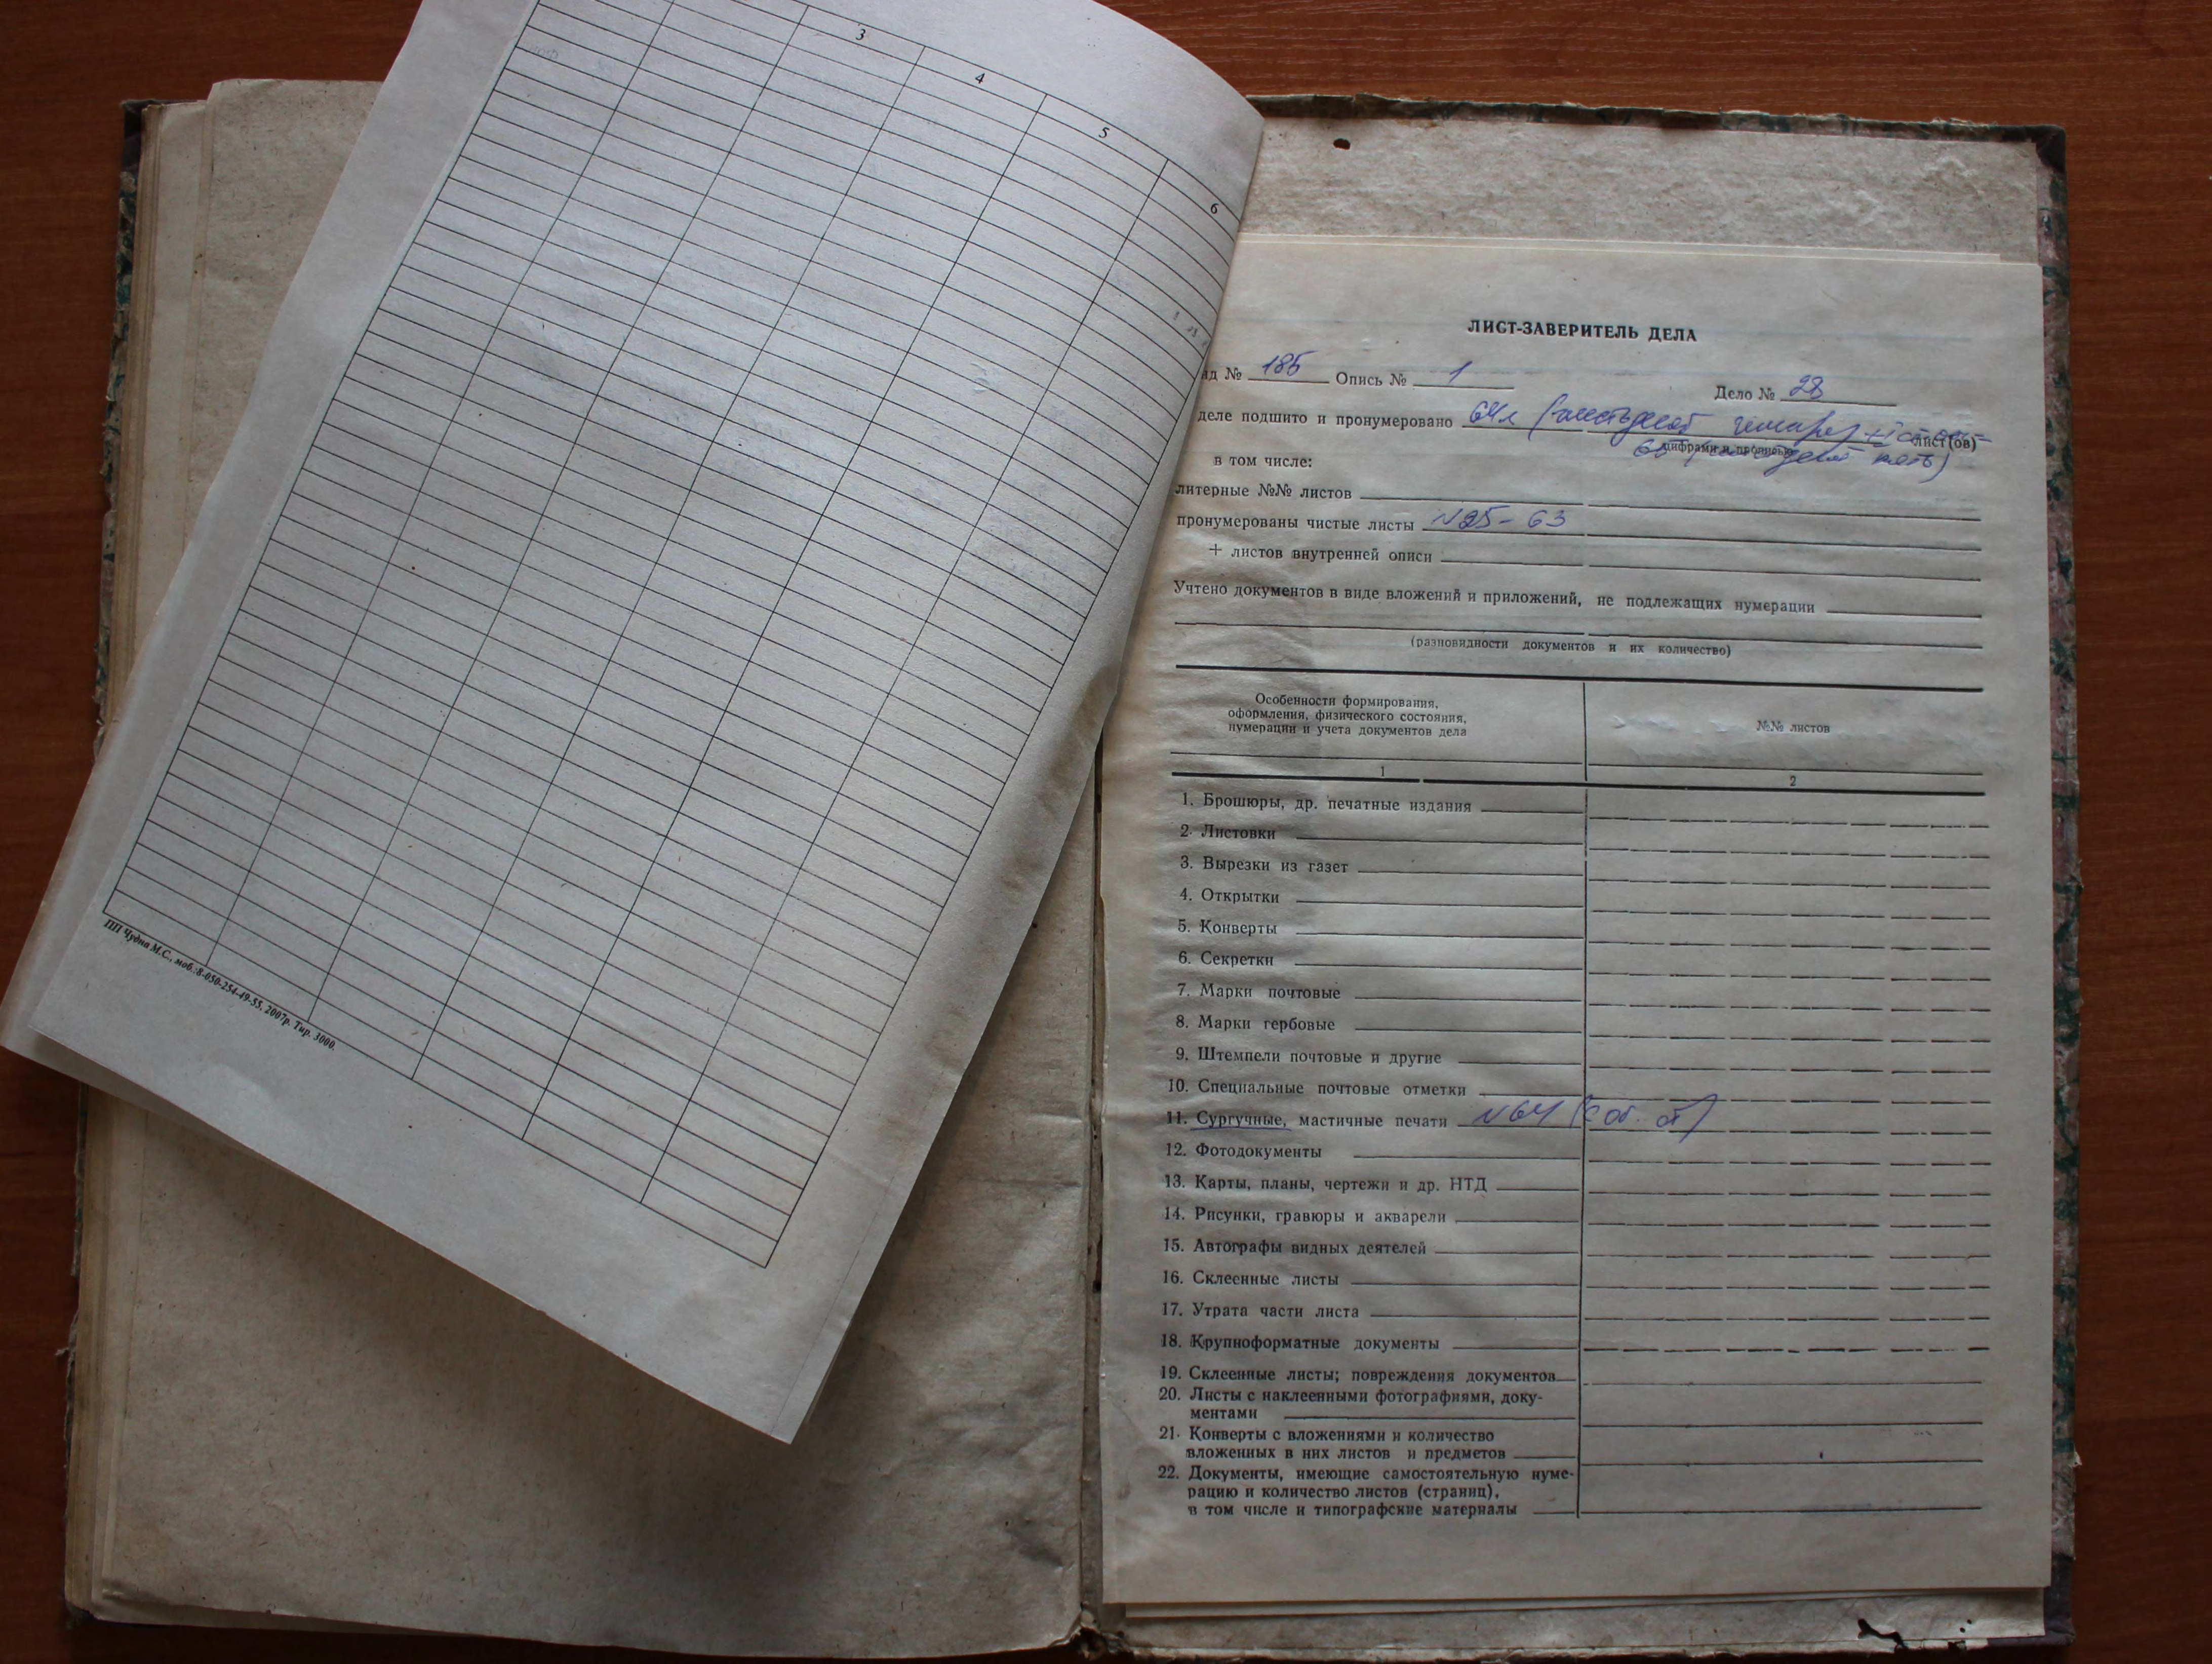 3
4
5
6
ПП Чудна М.С., моб.:8-050-254-49-55, 2007р. Тир. 3000.
ЛИСТ-ЗАВЕРИТЕЛЬ ДЕЛА
нд № 185 Опись № 1 Дело № 28
деле подшито и пронумеровано 64л (шестьдесят четыре) лист(ов)
цифрами и прописью
65 (шестьдесят пять)
в том числе:
литерные №№ листов
пронумерованы чистые листы №25-63
+ листов внутренней описи
Учтено документов в виде вложений и приложений, не подлежащих нумерации
(разновидности документов и их количество)
Особенности формирования,
оформления, физического состояния,
нумерации и учета документов дела
№№ листов
1
2
1. Брошюры, др. печатные издания
2. Листовки
3. Вырезки из газет
4. Открытки
5. Конверты
6. Секретки
7. Марки почтовые
8. Марки гербовые
9. Штемпели почтовые и другие
10. Специальные почтовые отметки
11. Сургучные, мастичные печати №64 (с об. ст)
12. Фотодокументы
13. Карты, планы, чертежи и др. НТД
14. Рисунки, гравюры и акварели
15. Автографы видных деятелей
16. Склеенные листы
17. Утрата части листа
18. Крупноформатные документы
19. Склеенные листы; повреждения документов
20. Листы с наклеенными фотографиями, доку-
ментами
21. Конверты с вложениями и количество
вложенных в них листов и предметов
22. Документы, имеющие самостоятельную нуме-
рацию и количество листов (страниц),
в том числе и типографские материалы